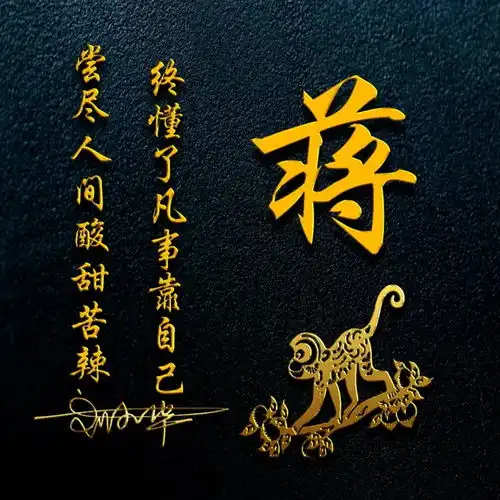 蒋
终懂了凡事靠自己
尝尽人间酸甜苦辣